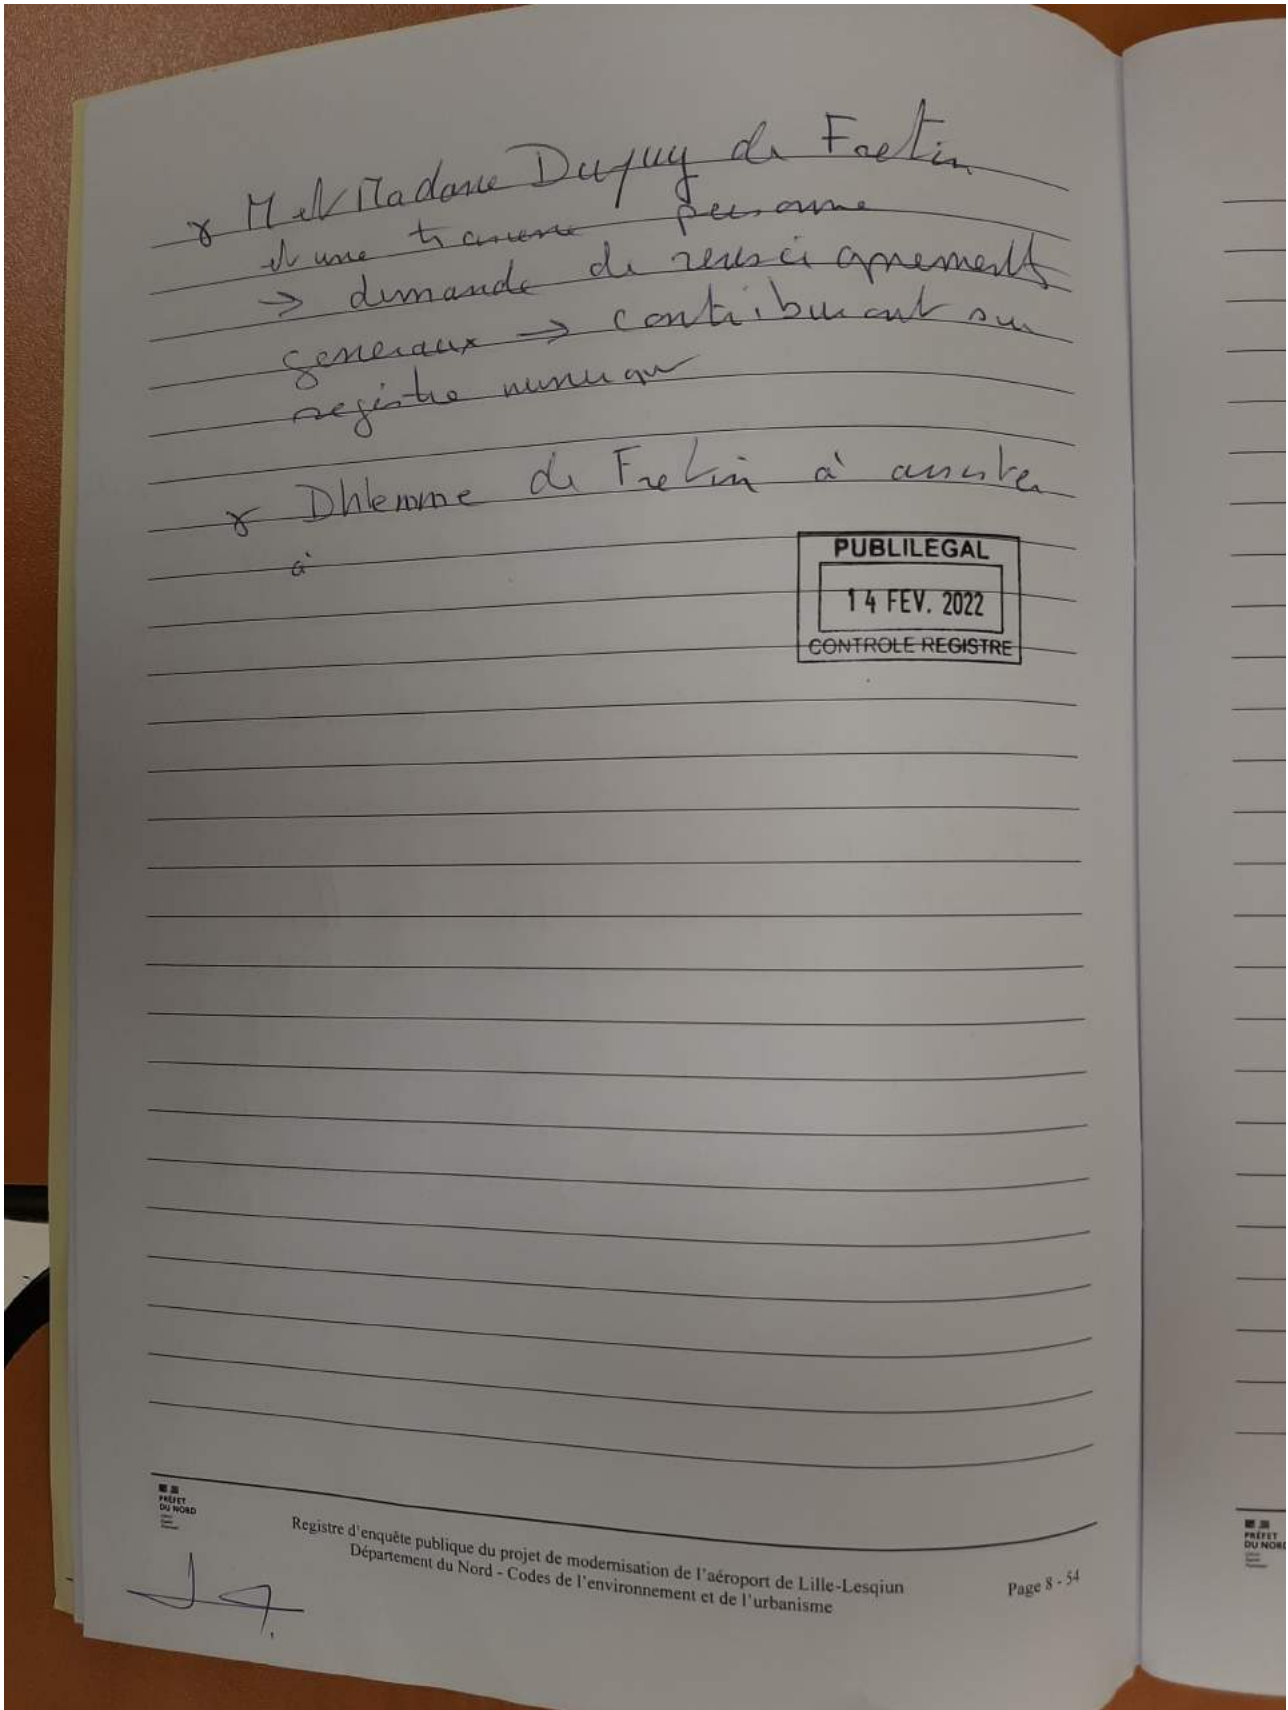 M et Madame Dupuy de Fretin
et une troisieme personne
→ demande de renseignements
generaux → contribuant sur
registre numerique
Dhlemme de Fretin à assister
à
PUBLILEGAL
14 FEV. 2022
CONTROLE REGISTRE
PRÉFET
DU NORD
Registre d'enquête publique du projet de modernisation de l'aéroport de Lille-Lesqiun
Département du Nord - Codes de l'environnement et de l'urbanisme
Page 8 - 54
PRÉFET
DU NORD